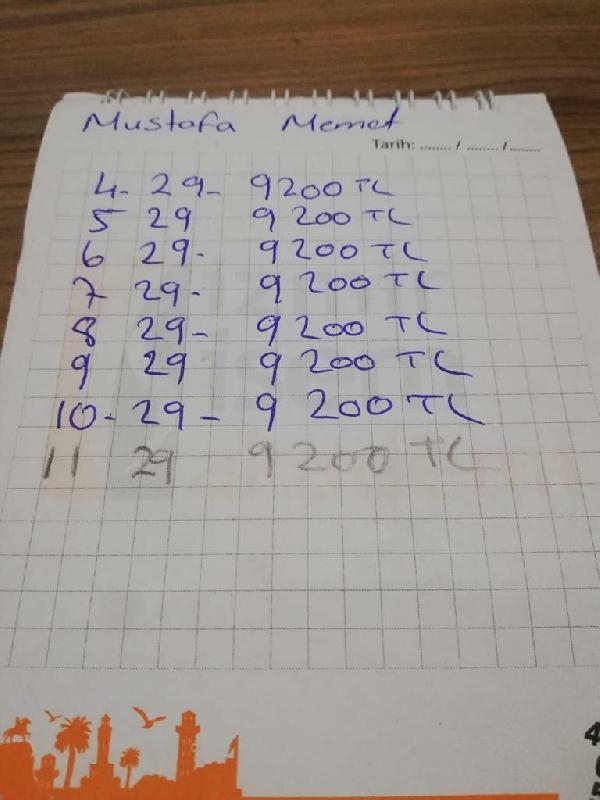 Mustafa Memet
Tarih: ......../......../........
4- 29- 9200 TL
5 29 9 200 TL
6 29- 9 200 TL
7 29- 9 200 TL
8 29- 9 200 TL
9 29 9 200 TL
10- 29- 9 200 TL
11 29 9 200 TL
4